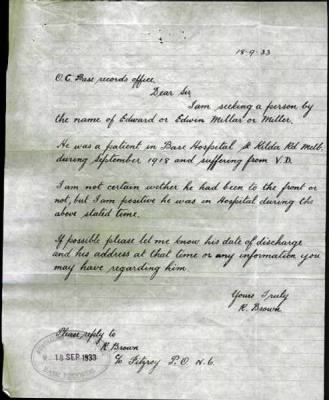 18-9-33
O.C. Base records office
Dear Sir
I am seeking a person by
the name of Edward or Edwin Millar or Miller.
He was a patient in Base Hospital St Kilda Rd Melb.
during September 1918 and suffering from V.D.
I am not certain wither he had been to the front or
not, but I am positive he was in Hospital during the
above stated time.
If possible please let me know his date of discharge
and his address at that time or any information you
may have regarding him.
Yours Truly
R. Brown
Please reply to
R. Brown
c/o Fitzroy P.O. N.6.
18 SEP 1933
BASE RECORDS